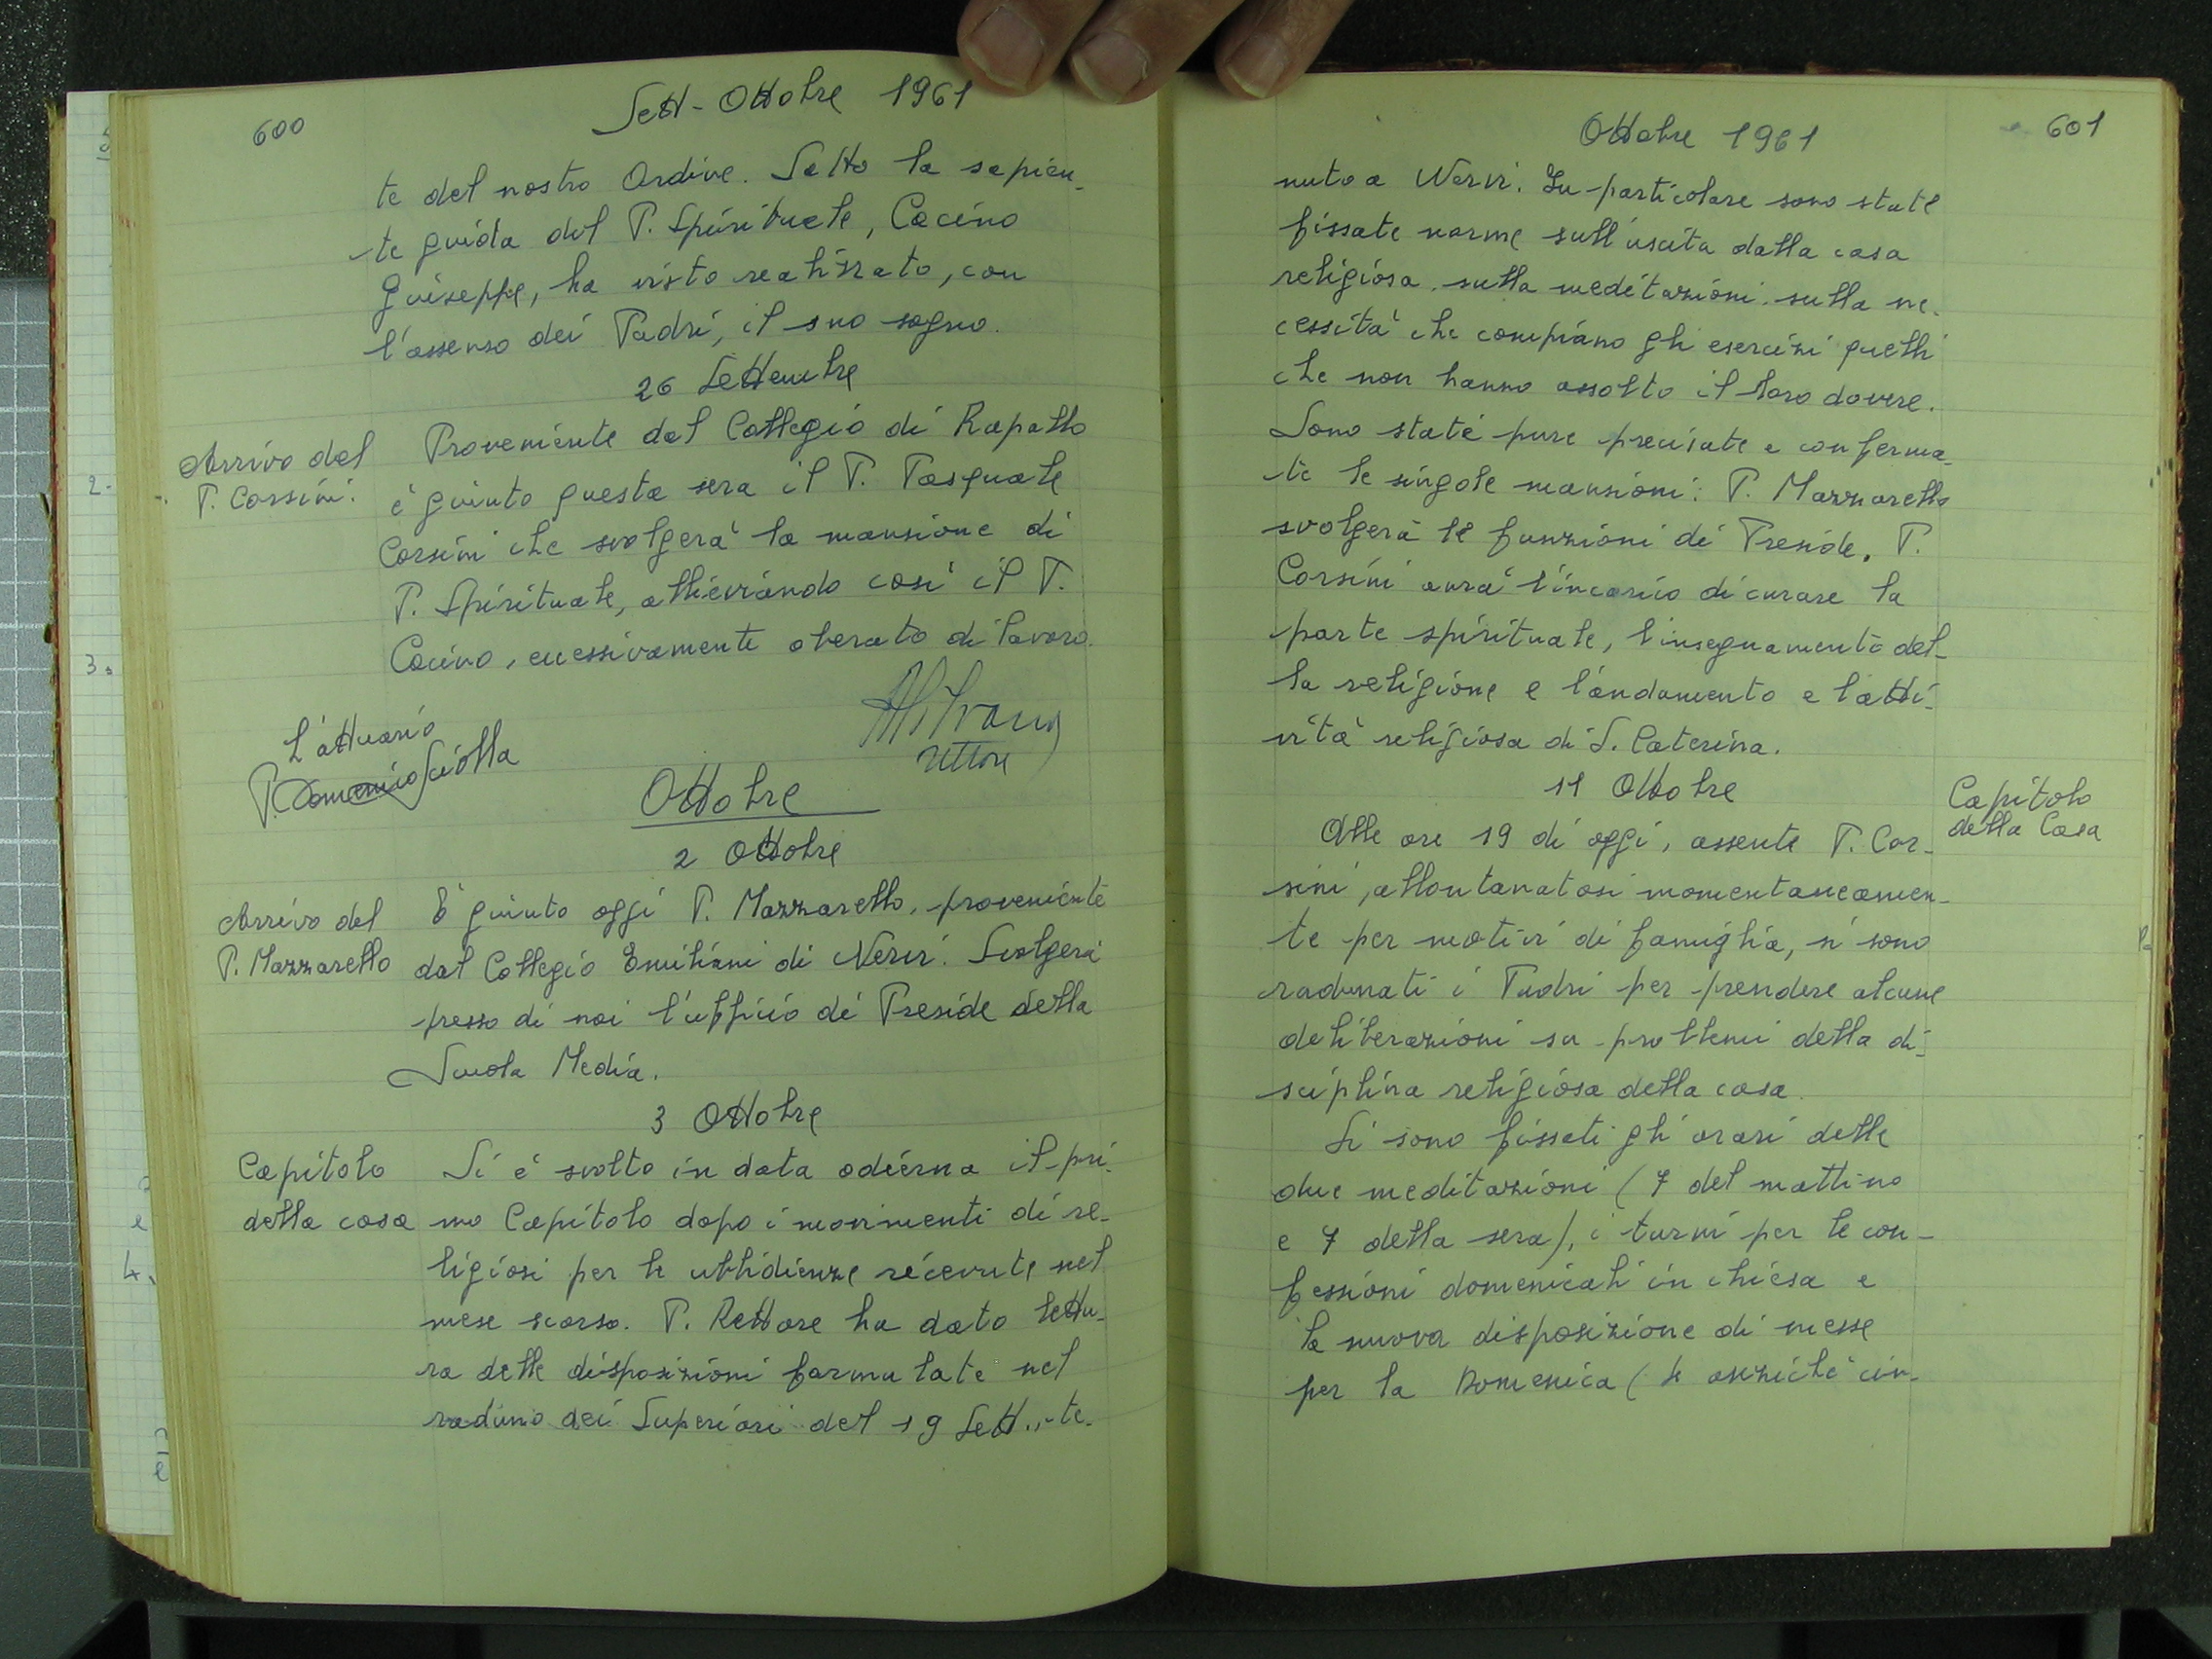 600
Sett-Ottobre 1961
te del nostro Ordine. Sotto la sapien-
te guida del P. Spirituale, Cocino
Giuseppe, ha visto realizzato, con
l'assenso dei Padri, il suo sogno.
26 Settembre
Arrivo del
P. Corsini.
Proveniente dal Collegio di Rapallo
è giunto questa sera il P. Pasquale
Corsini che svolgerà la mansione di
P. Spirituale, allieviando così il P.
Cocino, eccessivamente oberato di lavoro.
L'attuario
P. Domenico Sciolla
rettore
Ottobre
2 Ottobre
Arrivo del
P. Mazzarello
È giunto oggi P. Mazzarello, proveniente
dal Collegio Emiliani di Nervi. Svolgerà
presso di noi l'ufficio di Preside della
Scuola Media.
3 Ottobre
Capitolo
della casa
Si è svolto in data odierna il pri-
mo Capitolo dopo i movimenti di re-
ligiosi per le ubbidienze ricevute nel
mese scorso. P. Rettore ha dato lettu-
ra delle disposizioni formulate nel
raduno dei Superiori del 19 Sett., te-
Ottobre 1961
601
nuto a Nervi. In particolare sono state
fissate norme sull'uscita dalla casa
religiosa, sulla meditazioni, sulla ne-
cessità che compiano gli esercizi quelli
che non hanno assolto il loro dovere.
Sono state pure precisate e conferma-
te le singole mansioni: P. Mazzarello
svolgerà le funzioni di Preside, P.
Corsini avrà l'incarico di curare la
parte spirituale, l'insegnamento del-
la religione e l'andamento e l'atti-
vità religiosa di S. Caterina.
11 Ottobre
Capitolo
della Casa
Alle ore 19 di oggi, assente P. Cor-
sini, allontanatosi momentaneamen-
te per motivi di famiglia, si sono
radunati i Padri per prendere alcune
deliberazioni su problemi della di-
sciplina religiosa della casa.
Si sono fissati gli orari delle
due meditazioni (7 del mattino
e 7 della sera), i turni per le con-
fessioni domenicali in chiesa e
la nuova disposizione di messe
per la Domenica (4 anziché cin-